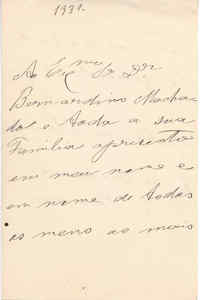 1931.
Ao Exmo Sr. Dr.
Bernardino Macha
do e toda a sua
Familia apresento
em meu nome e
em nome de todos
os meus as mais